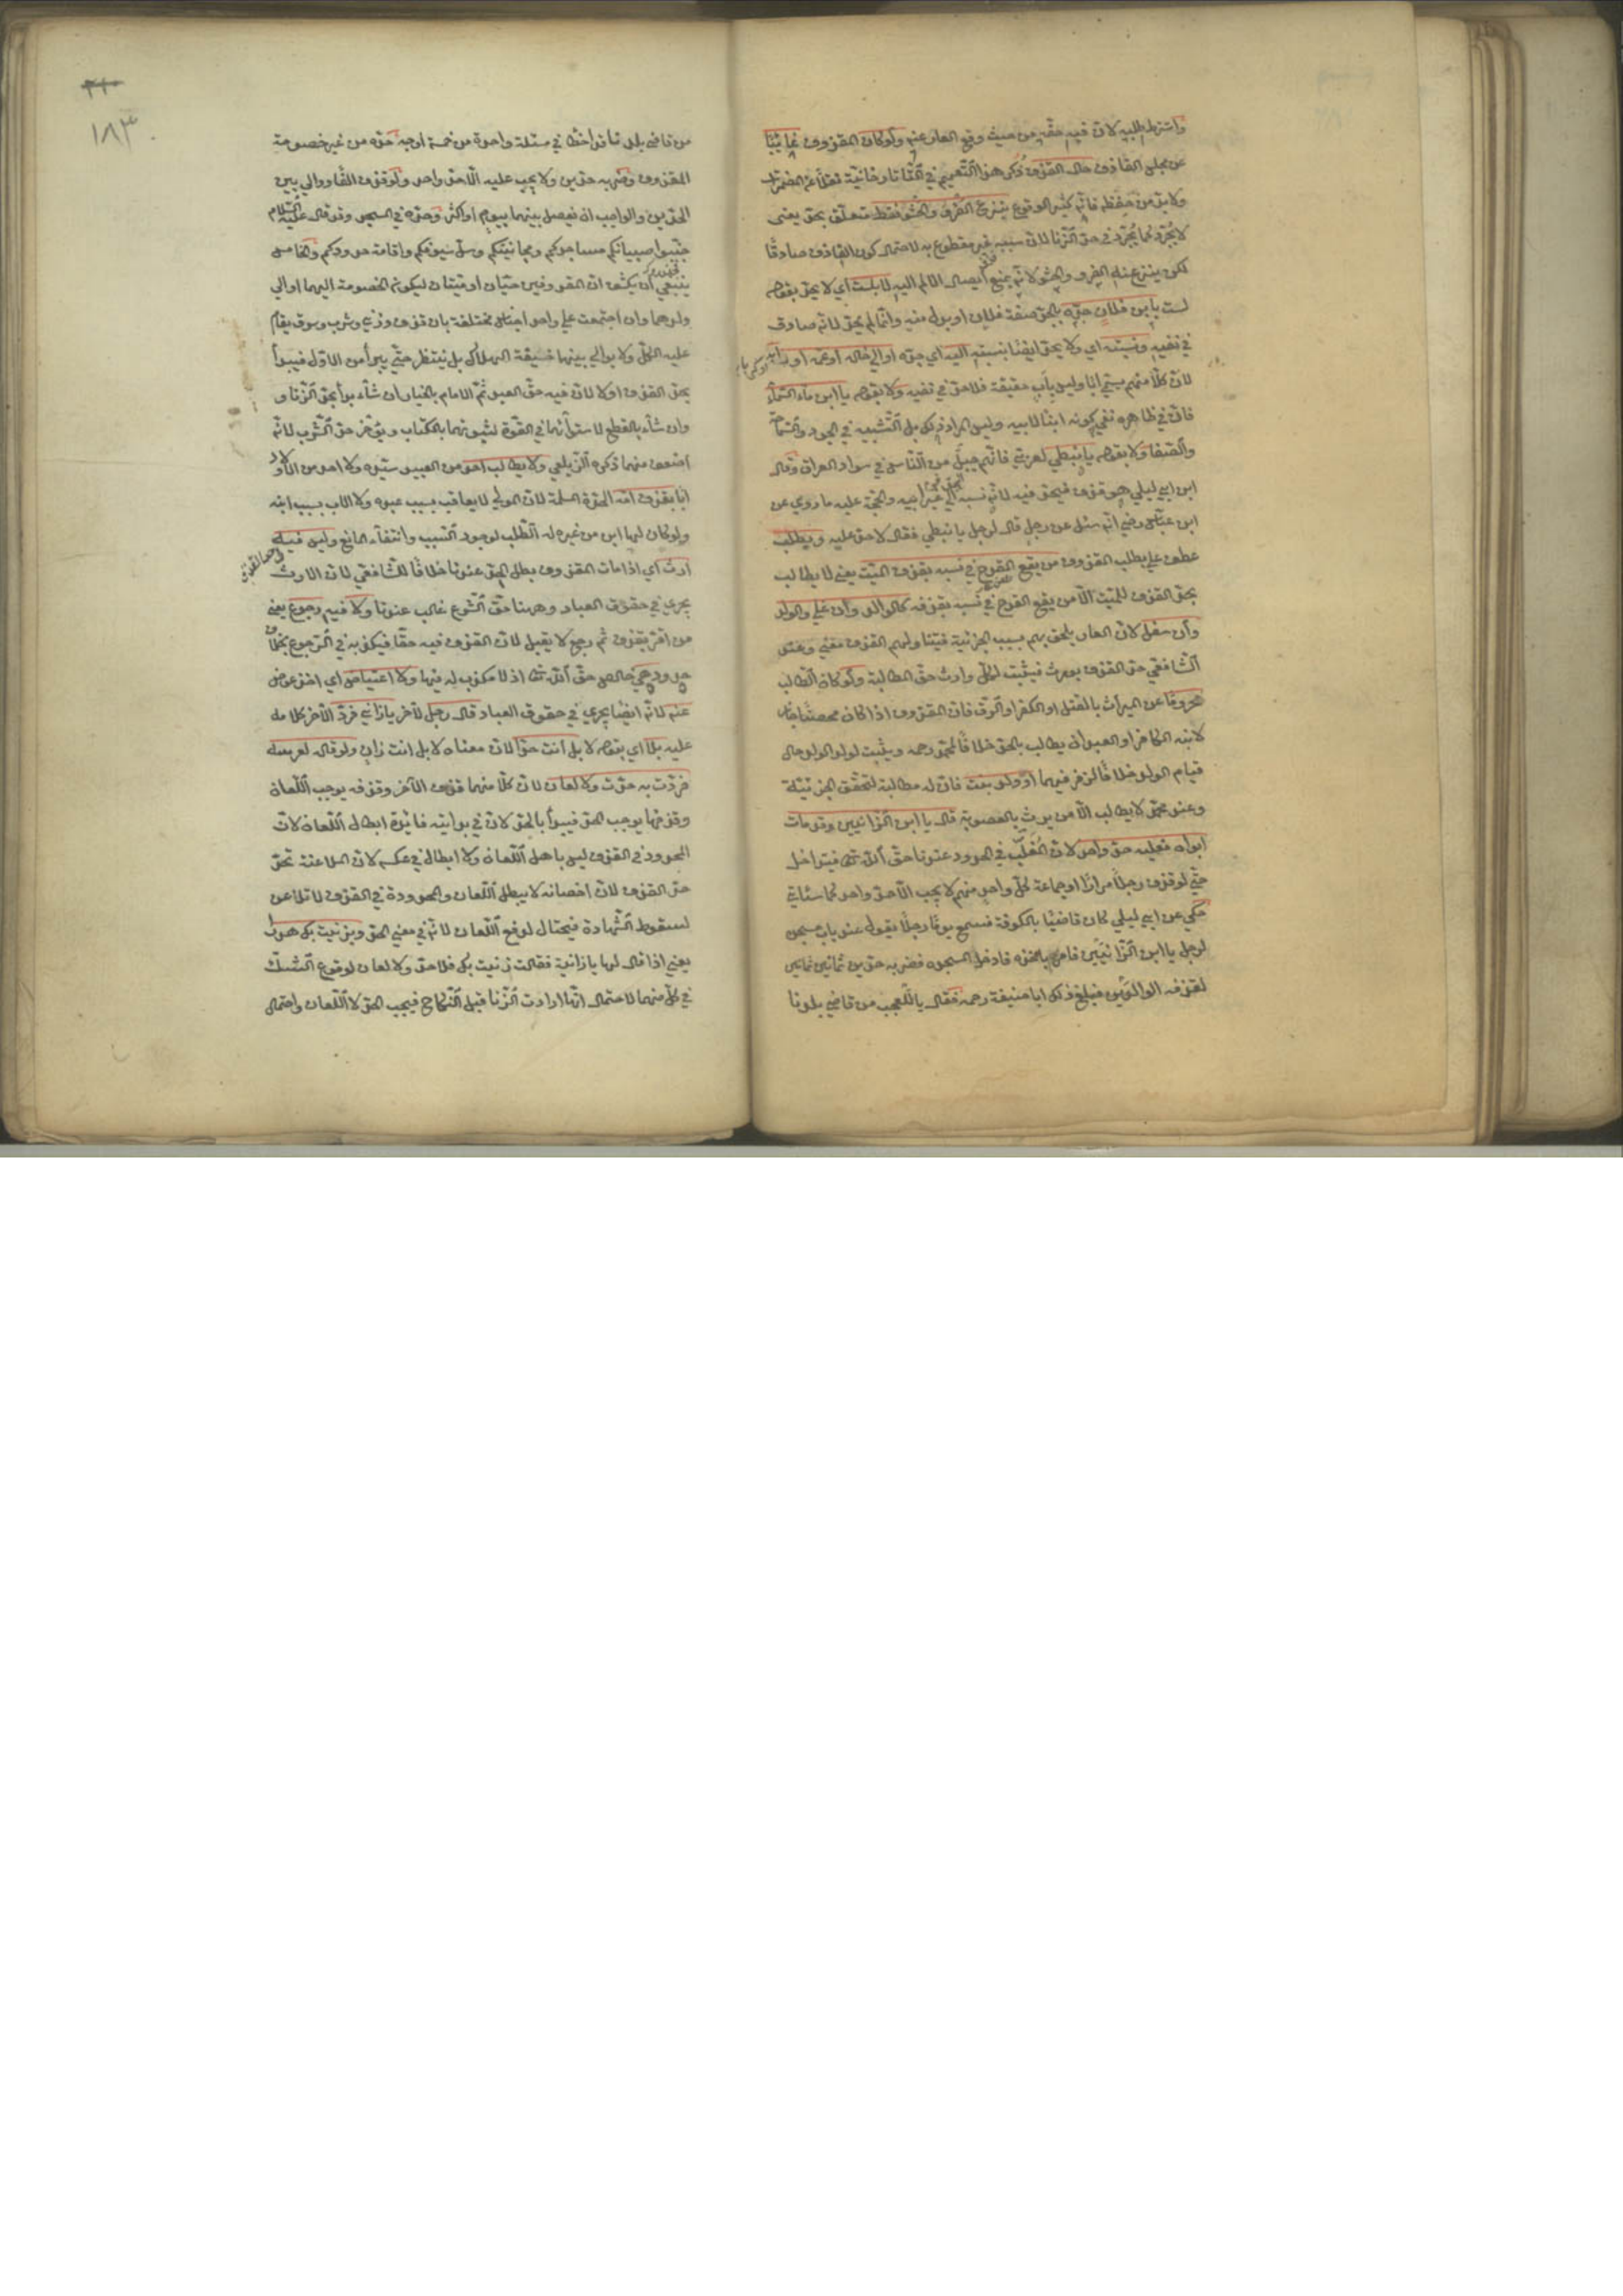 واشترط طلبه لانّ فيه حقّه من حيث دفع العار عنه ولو كان المقذوف غائبًا
عن مجلس القاذف حال القذف ذكر هذا التّعميم في التّاتارخانيّة نقلاً عن المضمرات
ولا بدّ من حفظه فانّه كثير الوقوع ينزع الفرو والحشو فقط متعلّق بحدّ يعنى
لا يُجرّد كما يُجرّد في حدّ الزّنا لانّ سببه غير مقطوع به لاحتمال كون القاذف صادقًا
لكن ينزع عنه الفرو والحشو لانّه يمنع ايصال الالم اليه لا بلست اي لا يحدّ بقوله
لست بابن فلان جدّه بالجرّ صفة فلان او بدل منه وانّما لم يحدّ لانّه صادق
في نفيه ونسبته اي ولا يحدّ ايضًا بنسبته اليه اي جدّه او الي خاله او عمّه او رابّه
لانّ كلاًّ منهم يسمّي ابًا وليس باب حقيقة فلا حدّ في نفيه ولا بقوله يا ابن ماء السّماء
فانّ في ظاهره نفي كونه ابنًا لابيه وليس المراد ذلك بل التّشبيه في الجود والسّماحة
والصّفا ولا بقوله يا نبطي لعربي فانّهم جبل من النّاس في سواد العراق وقال
ابن ابي ليلي هو قذف فيحدّ فيه لانّه نسبه الي غير ابيه والحجّة عليه ما روي عن
ابن عبّاس رضي انّه سئل عن رجل قال لرجل يا نبطي فقال لا حدّ عليه ويطلب
عطف علي يطلب المقذوف من يقع القدح في نسبه بقذف الميّت يعني لا يطالب
بحدّ القذف للميّت الاّ من يقع القدح في نسبه بقذفه كالوالد وان علي والولد
وان سفل لانّ العار يلحق بهم بسبب الجزئيّة فيتناولهم القذف معني وعند
الشّافعي حدّ القذف يورث فيثبت لكلّ وارث حقّ المطالبة ولو كان الطّالب
محرومًا عن الميراث بالقتل او الكفر او الرّق فانّ المقذوف اذا كان محصنًا جاز
لابنه الكافر او العبد ان يطالب بالحدّ خلافًا لمحمّد رحمه ويثبت لولد الولد حال
قيام الولد خلافًا لزفر فيهما او ولد بنت فانّ له مطالبة لتحقّق الجزئيّة
وعند محمّد لا يطالب الاّ من يرث بالعصوبة قال يا ابن الزّانيين وقد مات
ابواه فعليه حدّ واحد لانّ المُغَلَّب في الحدود عندنا حقّ الله تعالى فيتداخل
حتّي لو قذف رجلاً مرارًا او جماعة كلّ واحد منهم لا يجب الاّ حدّ واحد كما سيأتي
حُكي عن ابي ليلي كان قاضيًا بالكوفة فسمع يومًا رجلاً يقول عند باب مسجده
لرجل يا ابن الزّانيين فامر باخذه فادخل المسجد فضربه حدّين ثمانين ثمانين
لقذفه الوالدين فبلغ ذلك ابا حنيفة رحمه فقال يا للعجب من قاضي بلدنا
من قاضي بلدنا قد اخطا في مسئلة واحدة من خمسة اوجه حدّه من غير خصومة
المقذوف وضربه حدّين ولا يجب عليه الاّ حدّ واحد ولو قذف الفًا ووالي بين
الحدّين والواجب ان يفصل بينهما بيوم او اكثر وحدّه في المسجد وقد قال عليه السّلام
جنّبوا صبيانكم مساجدكم ومجانينكم وسلّ سيوفكم واقامة حدودكم والخامس
ينبغي ان يكشف انّ المقذوفين حيّان او ميّتان ليكون الخصومة اليهما او الي
ولدهما وان اجتمعت علي واحد اجناس مختلفة بان قذف وزني وشرب وسرق يقام
عليه الكلّ ولا يوالي بينهما خيفة الهلاك بل ينتظر حتّي يبرأ من الاوّل فيبدأ
بحدّ القذف اوّلا لانّ فيه حقّ العبد ثمّ الامام بالخيار ان شاء بدأ بحدّ الزّنا و
وان شاء بالقطع لاستوائهما في القوّة لثبوتهما بالكتاب ويؤخّر حدّ الشّرب لانّه
اضعف منهما ذكره الزّيلعي ولا يطالب احد من العبيد سيّده ولا احد من الاولاد
ابا بقذف امّه الحرّة المسلمة لانّ المولي لا يعاقب بسبب عبده ولا الاب بسبب ابنه
ولو كان لها ابن من غيره له الطّلب لوجود السّبب وانتفاء المانع وليس فيه
ارث اي اذا مات المقذوف بطل الحدّ عندنا خلافًا للشّافعي لانّ الارث
يجري في حقوق العباد وههنا حقّ الشّرع غالب عندنا ولا فيه رجوع يعني
من اقرّ بقذف ثمّ رجع لا يقبل لانّ للمقذوف فيه حقًّا فيكذّبه في الرّجوع بخلاف
حدود هي خالص حقّ الله تعالى اذ لا مكذّب له فيها ولا اعتياض اي اخذ عوض
عنه لانّه ايضًا يجري في حقوق العباد قال رجل لآخر يا زاني فردّ الآخر كلامه
عليه بلا اي بقوله لا بل انت حدّا لانّ معناه لا بل انت زان ولو قال لعرسه
فردّت به حدّت ولا لعان لانّ كلاًّ منهما قذف الآخر وقذفه يوجب اللّعان
وقذفها يوجب الحدّ فيبدأ بالحدّ لانّ في بدايته فائدة ابطال اللّعان لانّ
المحدود في القذف ليس باهل اللّعان ولا ابطال في عكسه لانّ الملاعنة تحدّ
حدّ القذف لانّ احصانه لا يبطل اللّعان والمحدودة في القذف لا تلاعن
لسقوط الشّهادة فيحتال لدفع اللّعان لانّه في معني الحدّ وبزنيت بك هدرا
يعني اذا قال لها يا زانية فقالت زنيت بك فلا حدّ ولا لعان لوقوع الشّكّ
في كلّ منهما لاحتمال انّها ارادت الزّنا قبل النّكاح فيجب الحدّ لا اللّعان واحتمال
١٨٣